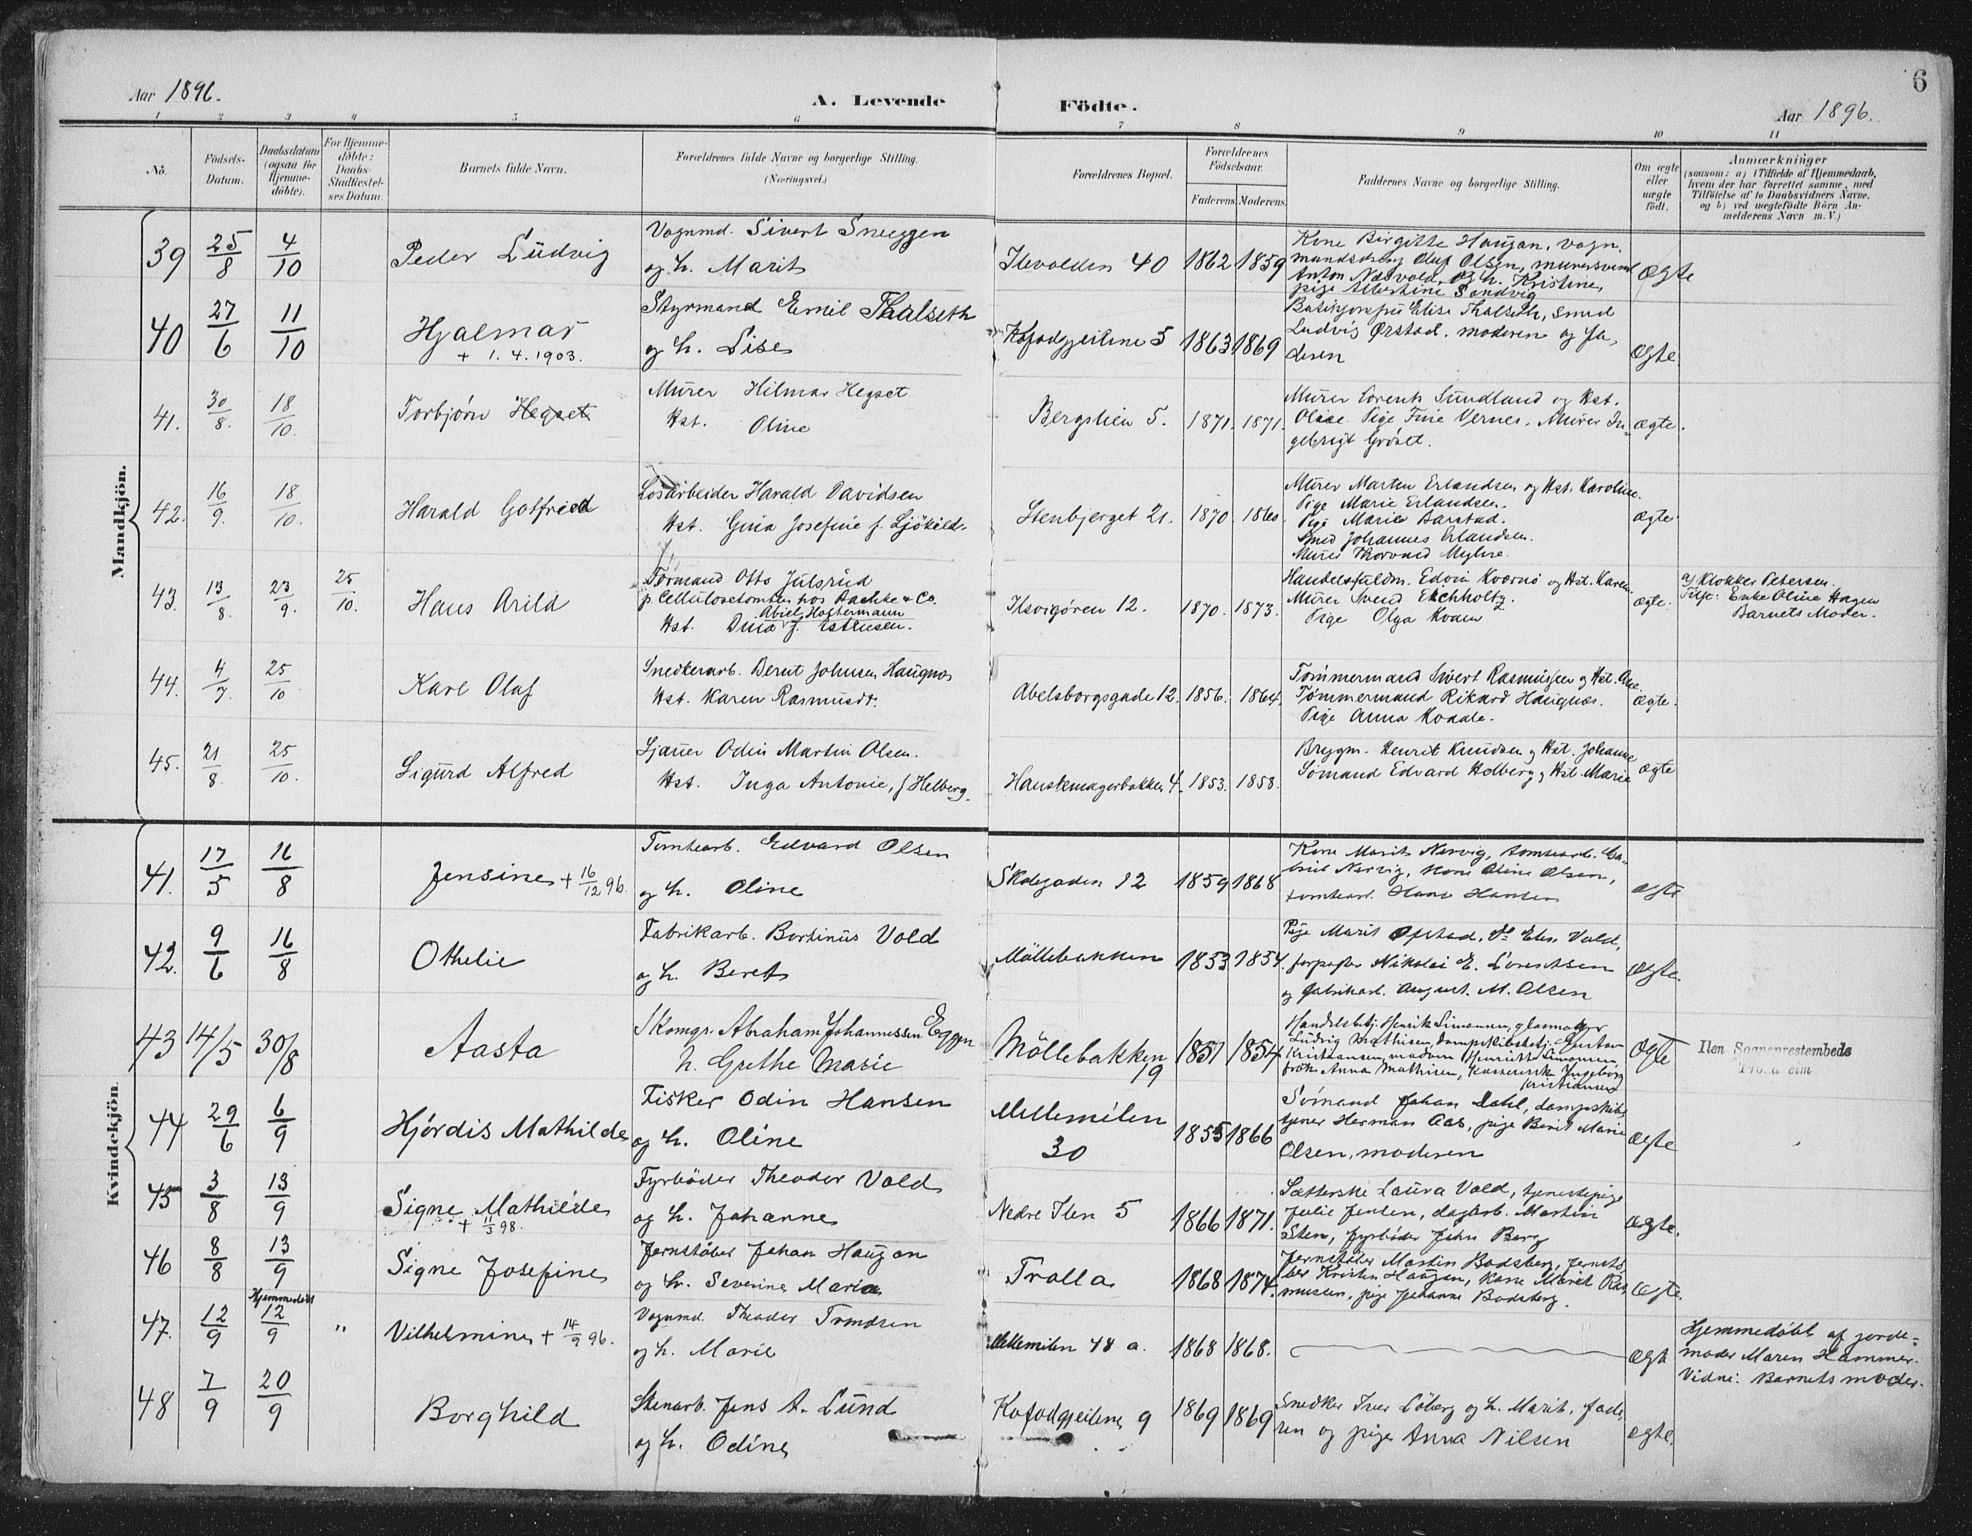 6
Aar 1896.
A. Levende Födte.
Aar 1896.
1 2 3 4 5 6 7 8 9 10 11
No.
Födsels-Datum.
Daabsdatum (ogsaa for Hjemme-döbte).
For Hjemme-döbte: Daabs-Stadfæstel-ses Datum.
Barnets fulde Navn.
Forældrenes fulde Navne og borgerlige Stilling.
(Næringsvei.)
Forældrenes Bopæl.
Forældrenes Födselsaar.
Faderens. Moderens.
Faddernes Navne og borgerlige Stilling.
Om ægte eller uægte födt.
Anmærkninger
(saasom: a) i Tilfælde af Hjemmedaab,
hvem der har forrettet samme, med
Tilföielse af to Daabsvidners Navne.
og b) ved uægtefödte Börn An-
melderens Navn m. V.)
Mandkjön.
39 25/8 4/10 Peder Ludvig
Vognmd. Sivert Sneggen
og h. Marit
Ilevolden 40 1862 1859
Kone Birgitte Haugan, vogn.
mandsdreng Oluf Olsen, murersvend
Anton Næsvold, og h. Kristine,
pige Albertine Sandvig
Ægte
40 27/6 11/10 Hjalmar
+ 1.4.1903.
Styrmand Emil Thalseth
og h. Lise
Kofodgjeilene 5 1863 1869
Elise Thalseth, smed
Ludvig Ørstad. moderen og fa-
deren
Ægte
41. 30/8. 18/10. Torbjørn Hegset
Murer Hilmar Hegset
Hst. Oline
Bergslien 5. 1871. 1871.
Murer Lorents Sundland og Hst.
Olise. Pige Fine Vernes. Murer In-
gebrigt Grøset.
ægte.
42. 16/9. 18/10. Harald Gotfried
Losarbeider Harald Davidsen
Hst. Gina Josefine f. Sjökild.
Stenbjerget 21. 1870. 1860.
Murer Morten Erlandsen og Hst. Karoline.
Pige Marie Erlandsen.
Pige Marie Barstad.
Smed Johannes Erlandsen.
Murer Thorvald Myhre.
ægte
43. 13/8. 23/9. 25/10. Hans Arild
Formand Otto Julsrud
p. Cellulosetomten hos Bachke & Co.
Abiel Hagtermann
Hst. Dina f. Estensen.
Ilsvigören 12. 1870. 1873.
Handelsfuldm. Edvin Kværnø og Hst. Karen.
Murer Svend Eichholtz
Pige Olga Moan
ægte.
a/ Klokker Petersen.
Enke Oline Hagen
Barnets Moder.
44. 4/7. 25/10 Karl Olaf
Snedkerarb. Bernt Johnsen Haugnæs
Hst. Karen Rasmusdt.
Abelsborgsgade 12. 1856. 1864.
Tømmermand Sivert Rasmussen og Hst. Ane
Tømmermand Rikard Haugnæs.
Pige Anna Kvaale.
ægte.
45. 21/8 25/10. Sigurd Alfred
Sjauer Odin Martin Olsen.
Hst. Inga Antonie, f Helberg.
Hanskemagerbakken 4. 1853. 1858.
Brygm. Henrik Knudsen og Hst. Johanne
Sømand Edvard Holberg og Hst. Marie
ægte
Kvindekjön.
41. 17/5 16/8 Jensine + 16/12 96.
Tomtearb. Edvard Olsen
og h. Oline
Skolegaden 12 1859 1868
Kone Marit Narvig, tomtearb.
Narvig, kone Oline Olsen,
tomtearb. Hans Hansen
ægte
42. 9/6 16/8 Othelie
Fabrikarb. Bortinus Vold
og h. Beret
Möllebakken 1853 1854.
Pige Marit Opstad, do Elen Vold,
forpagter Nikolai E. Lorentsen
og fabrikarb. August. M. Olsen
Ægte.
43 14/5 30/8 Aasta
Skomgr. Abraham Johannessen Eggen
h. Grethe Marie
Möllebakken 19 1851 1854
Handelsbetj. Henrik Simonsen, glasmager
Ludvig Mathisen, dampskibsbetj. Gustav
Kristiansen, madam Henriette Simonsen
frök. Anna Mathisen, kassererske Ingeborg
Kristiansen
Ægte
Ilen Sogneprestembede
44 29/6 6/9 Hjördis Mathilde
Fisker Odin Hansen
og h. Oline
Mellemilen 30 1855 1866
Sömand Johan Dahl, dampskibs-
tjener Herman Aas, pige Berit Marie
Olsen, moderen
Ægte
45 3/8 13/9 Signe Mathilde
+ 11/3 98.
Fyrböder Theodor Vold
og h. Johanne
Nedre Ilen 5 1866 1871.
Sætterske Laura Vold, tjenestepige
Julie Jensen, dagarb. Martin
Sten, fyrböder John Berg
ægte.
46 8/8 13/9 Signe Josefine
Jernstöber Johan Haugan
og h. Severine Maria
Trolla 1868 1874.
Jernstöber Martin Bodsberg, jernstö-
ber Kristen Haugan, kone Marit Ras-
mussen, pige Johanne Bodsberg.
Ægte.
Hjemmedöbt
47. 12/9 12/9 " Vilhelmine + 14/9 96.
Vognmd. Theodor Trondsen
og h. Marie
Mellemilen 48 a. 1868 1868.
ægte
Hjemmedöbt af jorde-
moder Maren Hammer.
Vidne: Barnets moder.
48 7/9 20/9 Borghild
Stenarb. Jens A. Lund
og h. Odine
Kofodgjeilene 9 1869 1869
Snedker Iver Löberg og h. Marit, fade-
ren og pige Anna Nilsen
ægte.